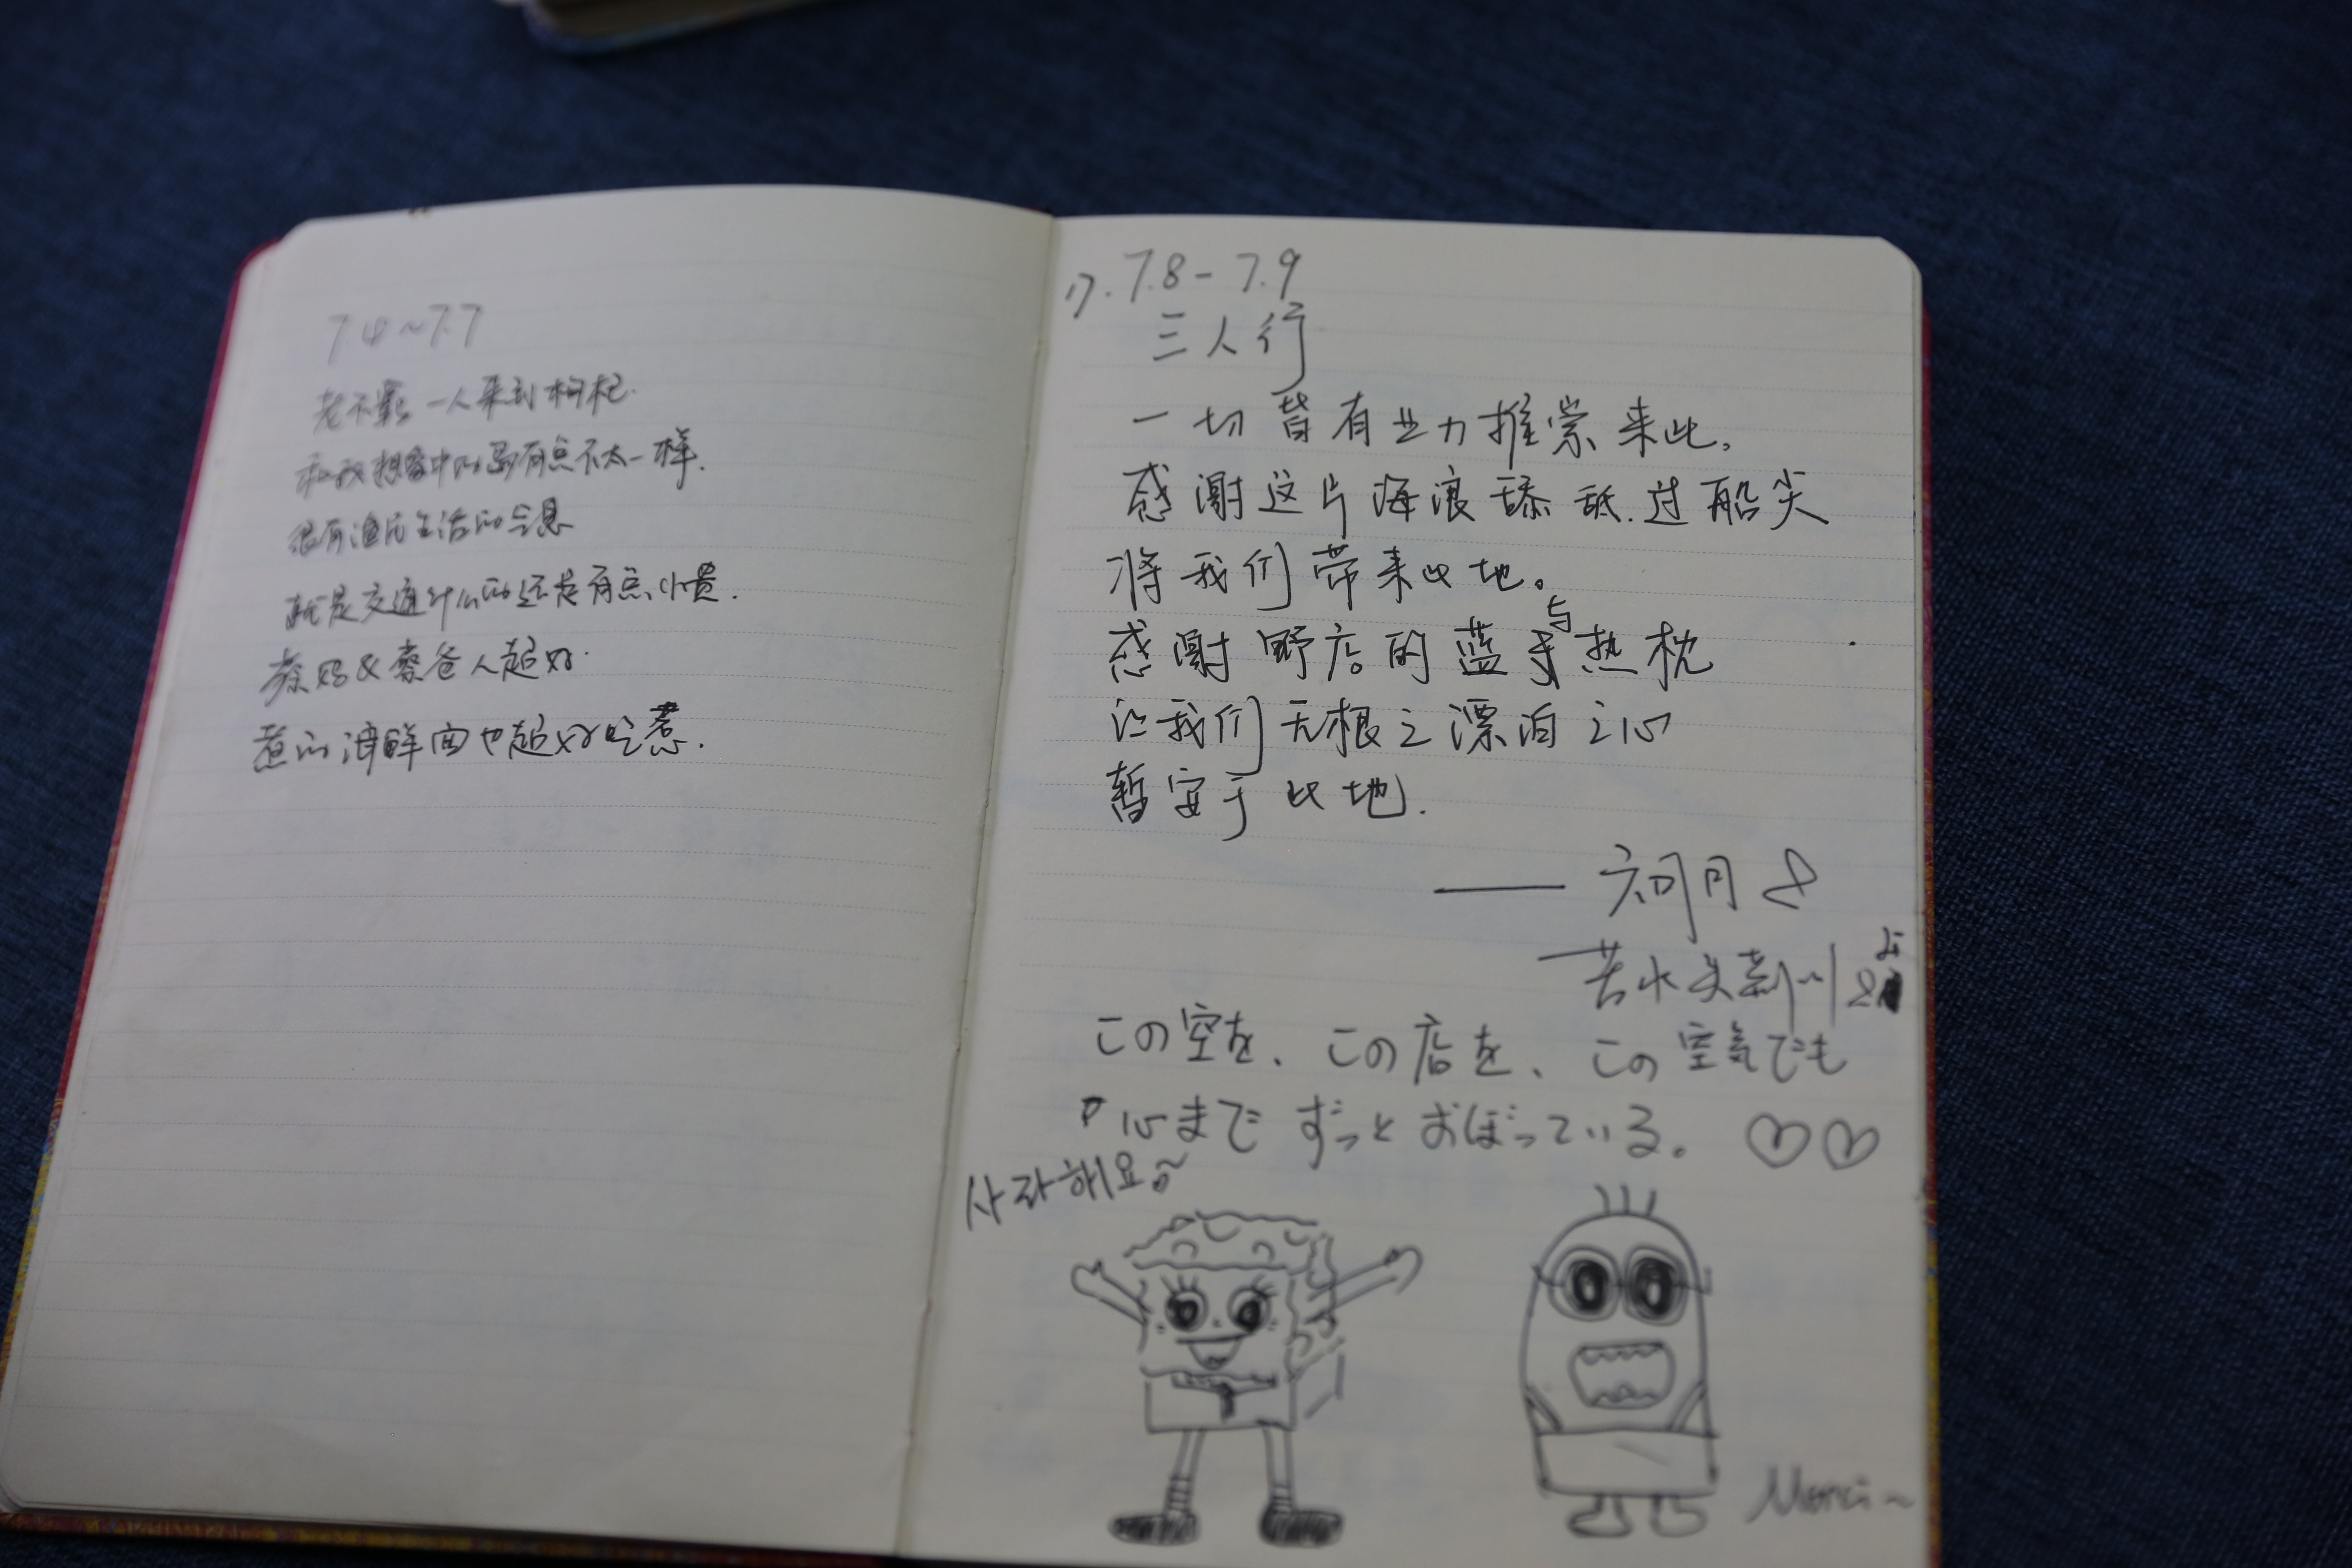 7.4~7.7
老不 一人来到枸杞.
和我想象中的岛有点不太一样.
很有渔民生活的气息
就是交通什么的还是有点小贵.
蔡妈&蔡爸人超好.
煮的海鲜面也超好吃惹.
17.7.8-7.9
三人行
一切皆有业力推 来此,
感谢这片海浪舔舐过船尖
将我们带来此地。
感谢野店的蓝与热枕
让我们无根之漂泊之心
暂安于此地.
月
苦水
この空を、この店を、この空気でも
心まで ずっと おぼっている。
사라해요~
Merci~